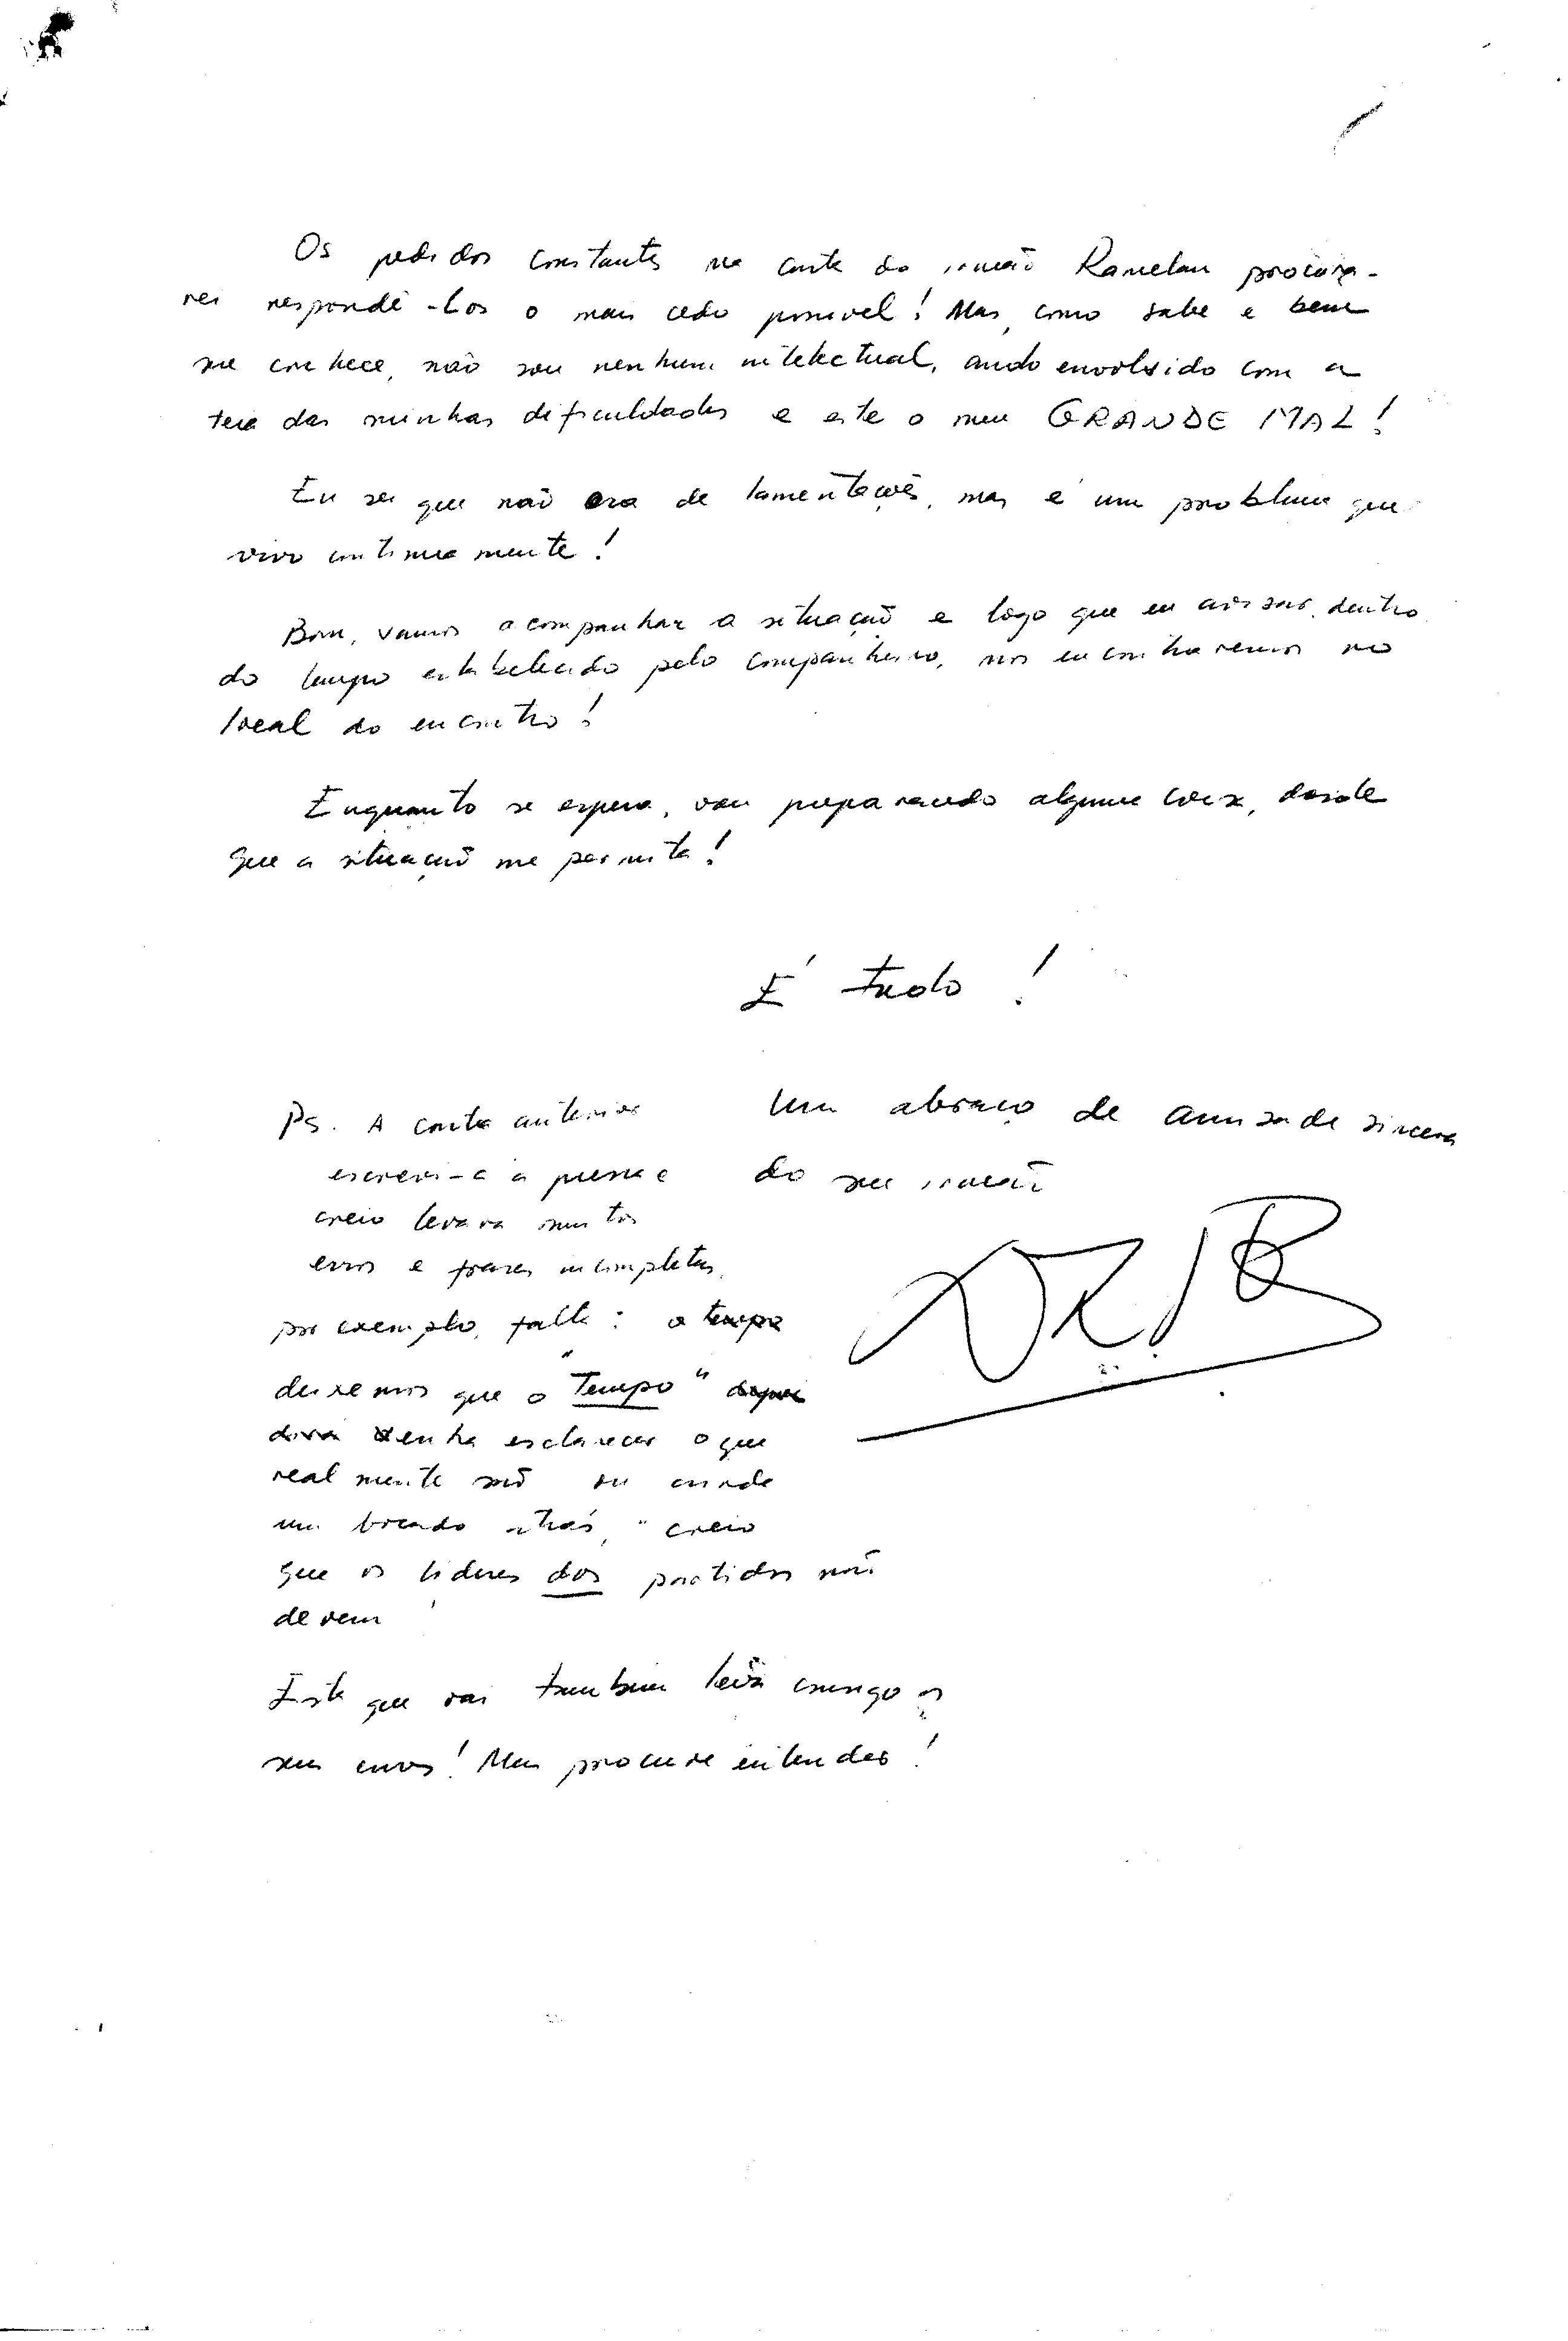 Os pedidos constantes na carta do irmão Ramelau procura-
rei respondê-los o mais cedo possível! Mas, como sabe e bem
me conhece, não sou nenhum intelectual, ando envolvido com a
teia das minhas dificuldades e este o meu GRANDE MAL!
Eu sei que não era de lamentações, mas é um problema que
vivo continuamente!
Bom, vamos acompanhar a situação e logo que eu avisar, dentro
do tempo estabelecido pelo companheiro, nos encontraremos no
local do encontro!
Enquanto se espera, vou preparando alguma coisa, desde
que a situação me permita!
É tudo!
Um abraço de amizade sincera
do seu irmão
Ps. A carta anterior
escrevi-a à pressa e
creio levara muitos
erros e frases incompletas,
por exemplo, falta: o tempo
deixemos que o "Tempo"
venha esclarecer o que
realmente são ou ainda
um bocado atrás, "creio
que os líderes dos partidos não
devem
Este que vai também levá comigo os
seus erros! Mas procure entender!